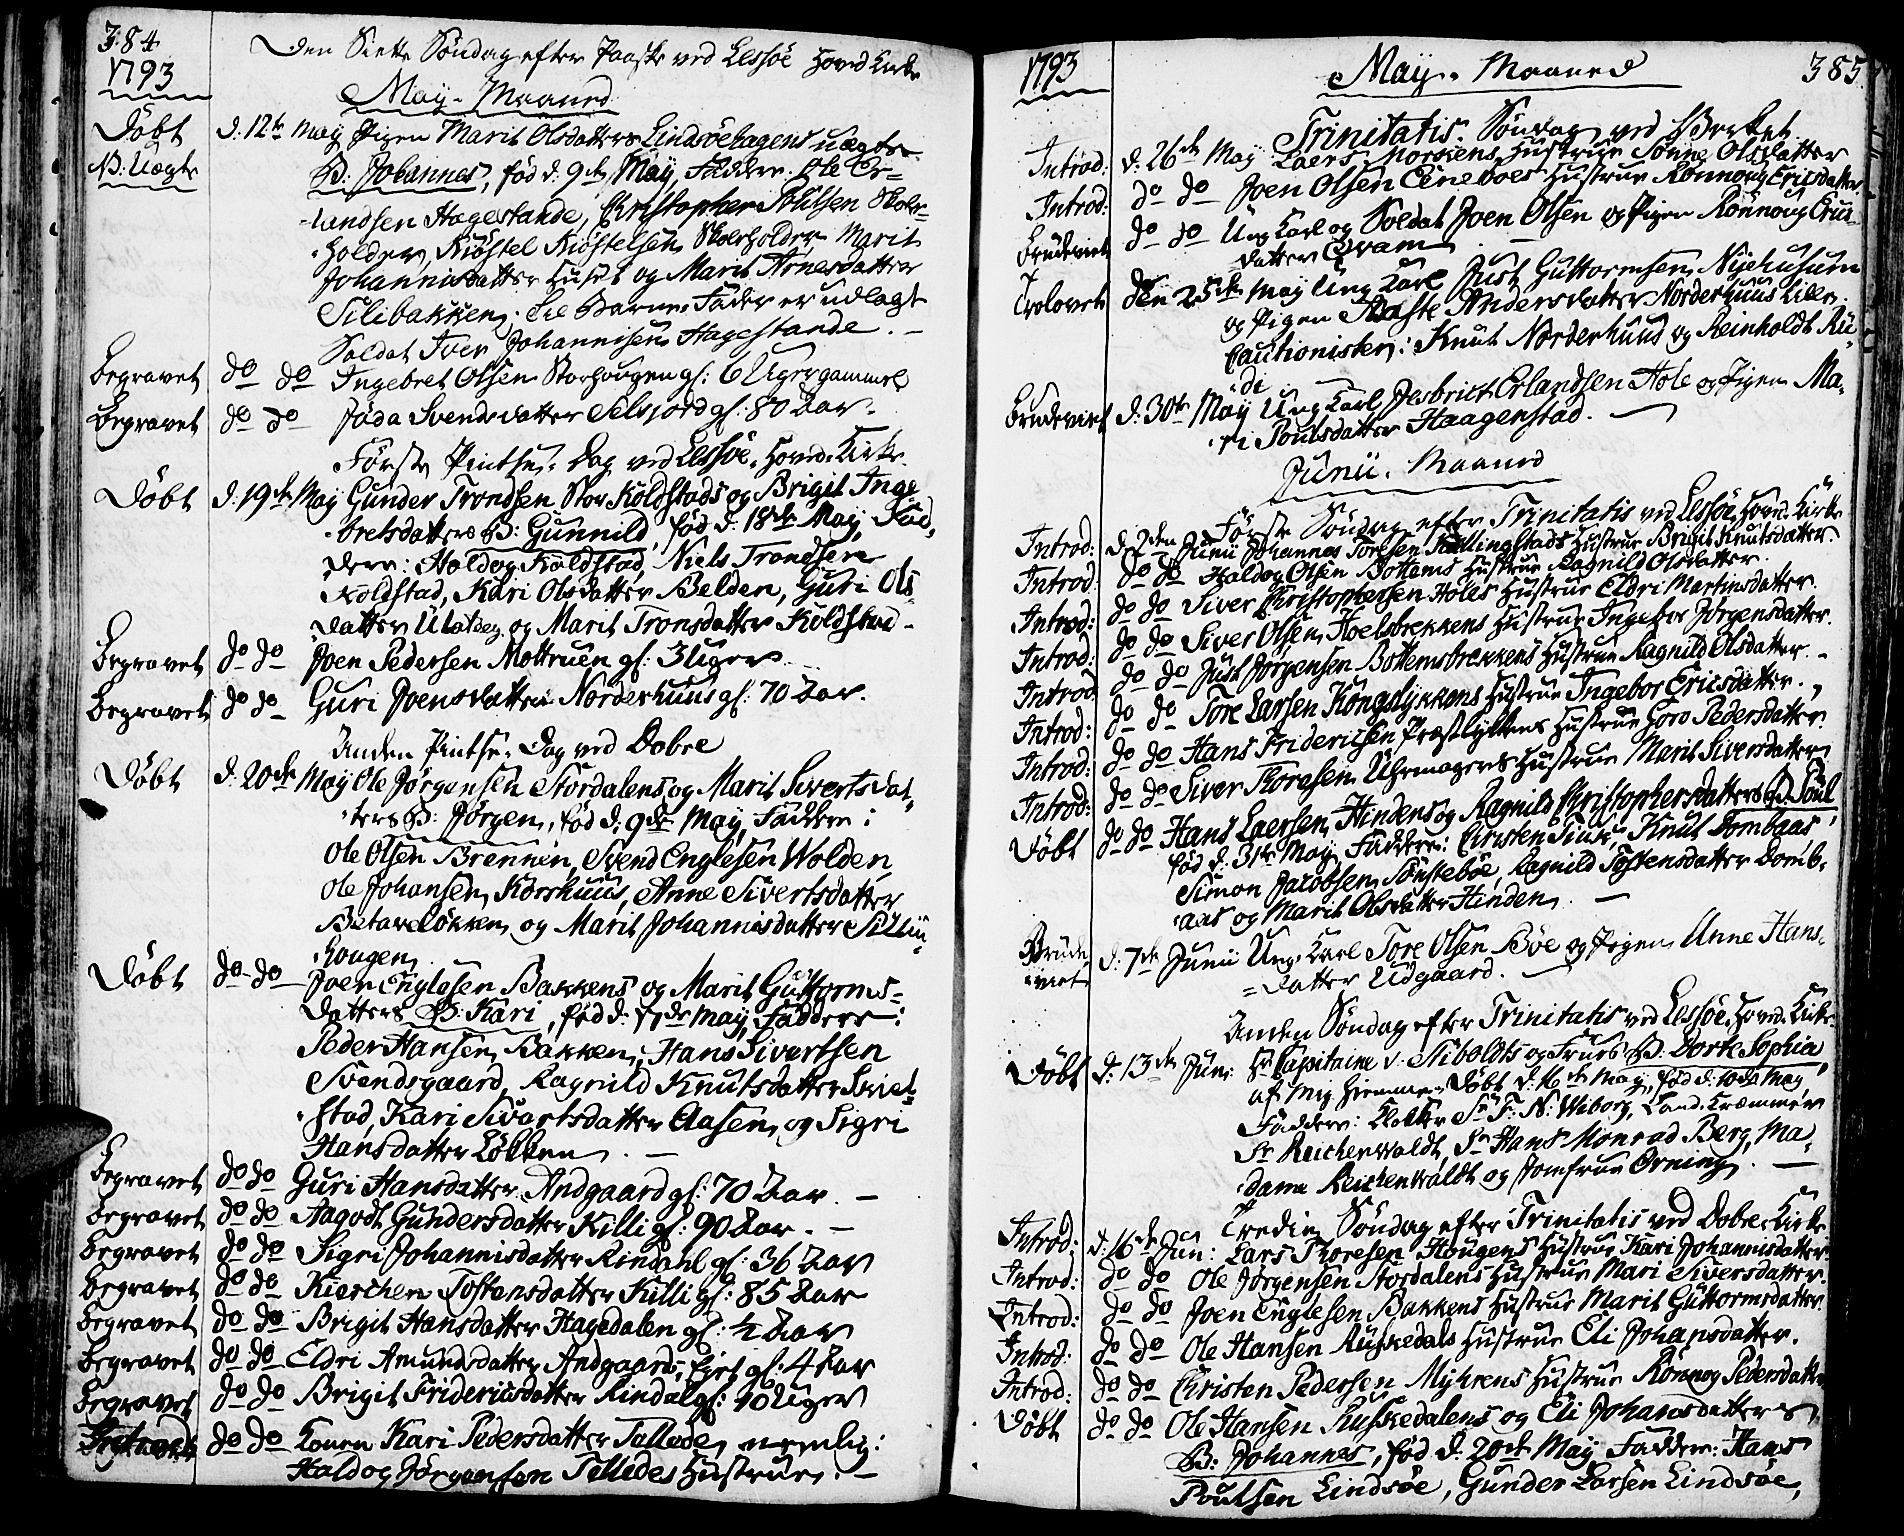 384
1793
Den Siette Søndag efter Paaske ved Lessøe Hoved Kirke
May-Maaned
Døbt d. 12te May Pigen Marit Olsdatters Lindsøehagens uægte
B: Uægte B: Johannes, fød d. 9de May, Faddere: Ole Er=
=landsen Hagestande, Christopher Poulsen Skole=
=holder, Kiøstel Kiøstelsen Skoleholder Marit
Johannisdatter Huset og Marit Arnesdatter
Silibakken. Til Barne-Fader er udlagt
Soldat Iver Johannisen Hagestande. -
Begravet do do Ingebret Olsen Storhougen gl: 6 Uger gammel
Begravet do do Jøda Svendsdatter Selsjord gl: 80 Aar.
Første Pintse-Dag ved Lessøe Hoved-Kirke.
Døbt d. 19de May Gunder Trondsen Stor Koldstads og Brigit Inge
=bretsdatters B: Gunnild, fød d. 18de May, Fad=
dere: Haldog Koldstad, Niels Trondsen
Koldstad, Kari Olsdatter Belden, Guri Ols=
datter Ulateg og Marit Tronsdatter Koldstad -
Begravet do do Joen Pedersen Mottruen gl: 3 Uger
Begravet do do Guri Joensdatter Norderhuus gl: 70 Aar.
Anden Pintse-Dag ved Dobre
Døbt d. 20de May Ole Jørgensen Stordalens og Marit Sivertsdat=
=ters B: Jørgen, fød d. 9de May, Faddere:
Ole Olsen Brennen, Svend Englesen Wolden,
Ole Johansen Korshuus, Anne Sivertsdatter
Løkken og Marit Johannisdatter
=hougen
Døbt do do Joen Englesen Bakkens og Marit Guttorms=
datters B: Kari, fød d. 7de May, Faddere:
Peder Hansen Bakken, Hans Sivertsen
Svendsgaard, Ragnild Knutsdatter
=stad, Kari Sivartsdatter Aasen og Sigri
Hansdatter Løkken. -
Begravet do do Guri Hansdatter Andgaard gl: 70 Aar. -
Begravet do do Aagodt Gundersdatter Killi gl: 90 Aar. -
Begravet do do Sigri Johannisdatter Rindahl gl: 36 Aar
Begravet do do Kierchen Tostensdatter Killi gl: 85 Aar
Begravet do do Brigit Hansdatter Hagedalen gl: ½ Aar
Begravet do do Eldri Amundsdatter Andgaards Eiet gl: 4 Aar
Begravet do do Brigit Fridericsdatter Rindal gl: 10 Uger
Introd: do do Konen Kari Pedersdatter Tallede, nemlig:
Haldog Jørgensen Telledes Hustrue. -
1793
May-Maaned
385
Trinitatis-Søndag ved
Introd: d. 26de May Laers Morkens Hustrue Sønne Olsdatter
Introd: do do Joen Olsen Eineboes Hustrue Rønnoug Ericsdatter
Brudeviet do do Ung Karl og Soldat Joen Olsen og Pigen Rønnoug Erics=
datter Qvam
Trolovet den 25de May Ung Karl Just Guttormsen Nyehusum
og Pigen Aaste Andersdatter Norderhuus Lien.
Cautionister: Knut Norderhuus og Reinholdt Ru=
di
Brudeviet d. 30te May Ung Karl Jesbrict Erlandsen Hole og Pigen Ma=
=ri Poulsdatter Haagenstad. -
Junii-Maaned
Første Søndag efter Trinitatis ved Lessøe Hoved-Kirke
Introd: d. 2den Junii Johannes Toresen Kollingstads Hustrue Brigit Knutsdatter.
Introd: do do Haldog Olsen Bottems Hustrue Ragnild Olsdatter.
Introd: do do Siver Christophersen Holes Hustrue Eldri Martinsdatter.
Introd: do do Siver Olsen Hoelsbekkens Hustrue Ingebor Jørgensdatter.
Introd do do Just Jørgensen Bottemsbrekkens Hustrue Ragnild Olsdatter. -
Introd: do do Tore Larsen Kongslykkens Hustrue Ingebor Ericsdatter.
Introd: do do Hans Fridericsen Præstlykkens Hustrue Goro Pedersdatter.
Introd: do do Siver Thoresen Uhrmagers Hustrue Marit Siversdatter
Døbt do do Hans Laersen Hindens og Ragnild Christophersdatters B: Poul
fød d. 31te May, Faddere: Christen Tiuk, Knut Dombaas
Simon Jacobsen Sønstebøe, Ragnild Tostensdatter Domb=
=aas og Marit Olsdatter Hinden. -
Brude=
=viet d. 7de Junii Ung-Karl Tore Olsen Bøe og Pigen Anne Hans=
=datter Udgaard. -
Anden Søndag efter Trinitatis ved Lessøe Hoved-Kirke
Døbt d. 13de Jun: Hr Capitaine v: Siboldts og Frues B: Dorte Sophia,
af mig hiemme-Døbt d. 16de May, fød d. 10de May,
Faddere: Klokker Sr F: N: Wiborg, Land-Kræmmer
Sr Reichenwaldt, Sr Hans Monrad Berg, Ma=
=dame Reichenwaldt og Jomfrue Ørning. -
Tredie Søndag efter Trinitatis ved Dobre Kirke
Introd: d. 16de Jun: Lars Thoresen Hougens Hustrue Kari Johannisdatter
Introd: do do Ole Jørgensen Stordalens Hustrue Mari Siversdatter.
Introd: do do Joen Englesen Bakkens Hustrue Marit Guttormsdatter
Introd: do do Ole Hansen Ruskedals Hustrue Eli Johansdatter.
Introd: do do Christen Pedersen Myhrens Hustrue Rønnog Pedersdatter
Døbt do do Ole Hansen Ruskedalens og Eli Johansdatters
B: Johannes, fød d. 20de May, Faddere: Hans
Poulsen Lindsøe, Gunder Larsen Lindsøe,